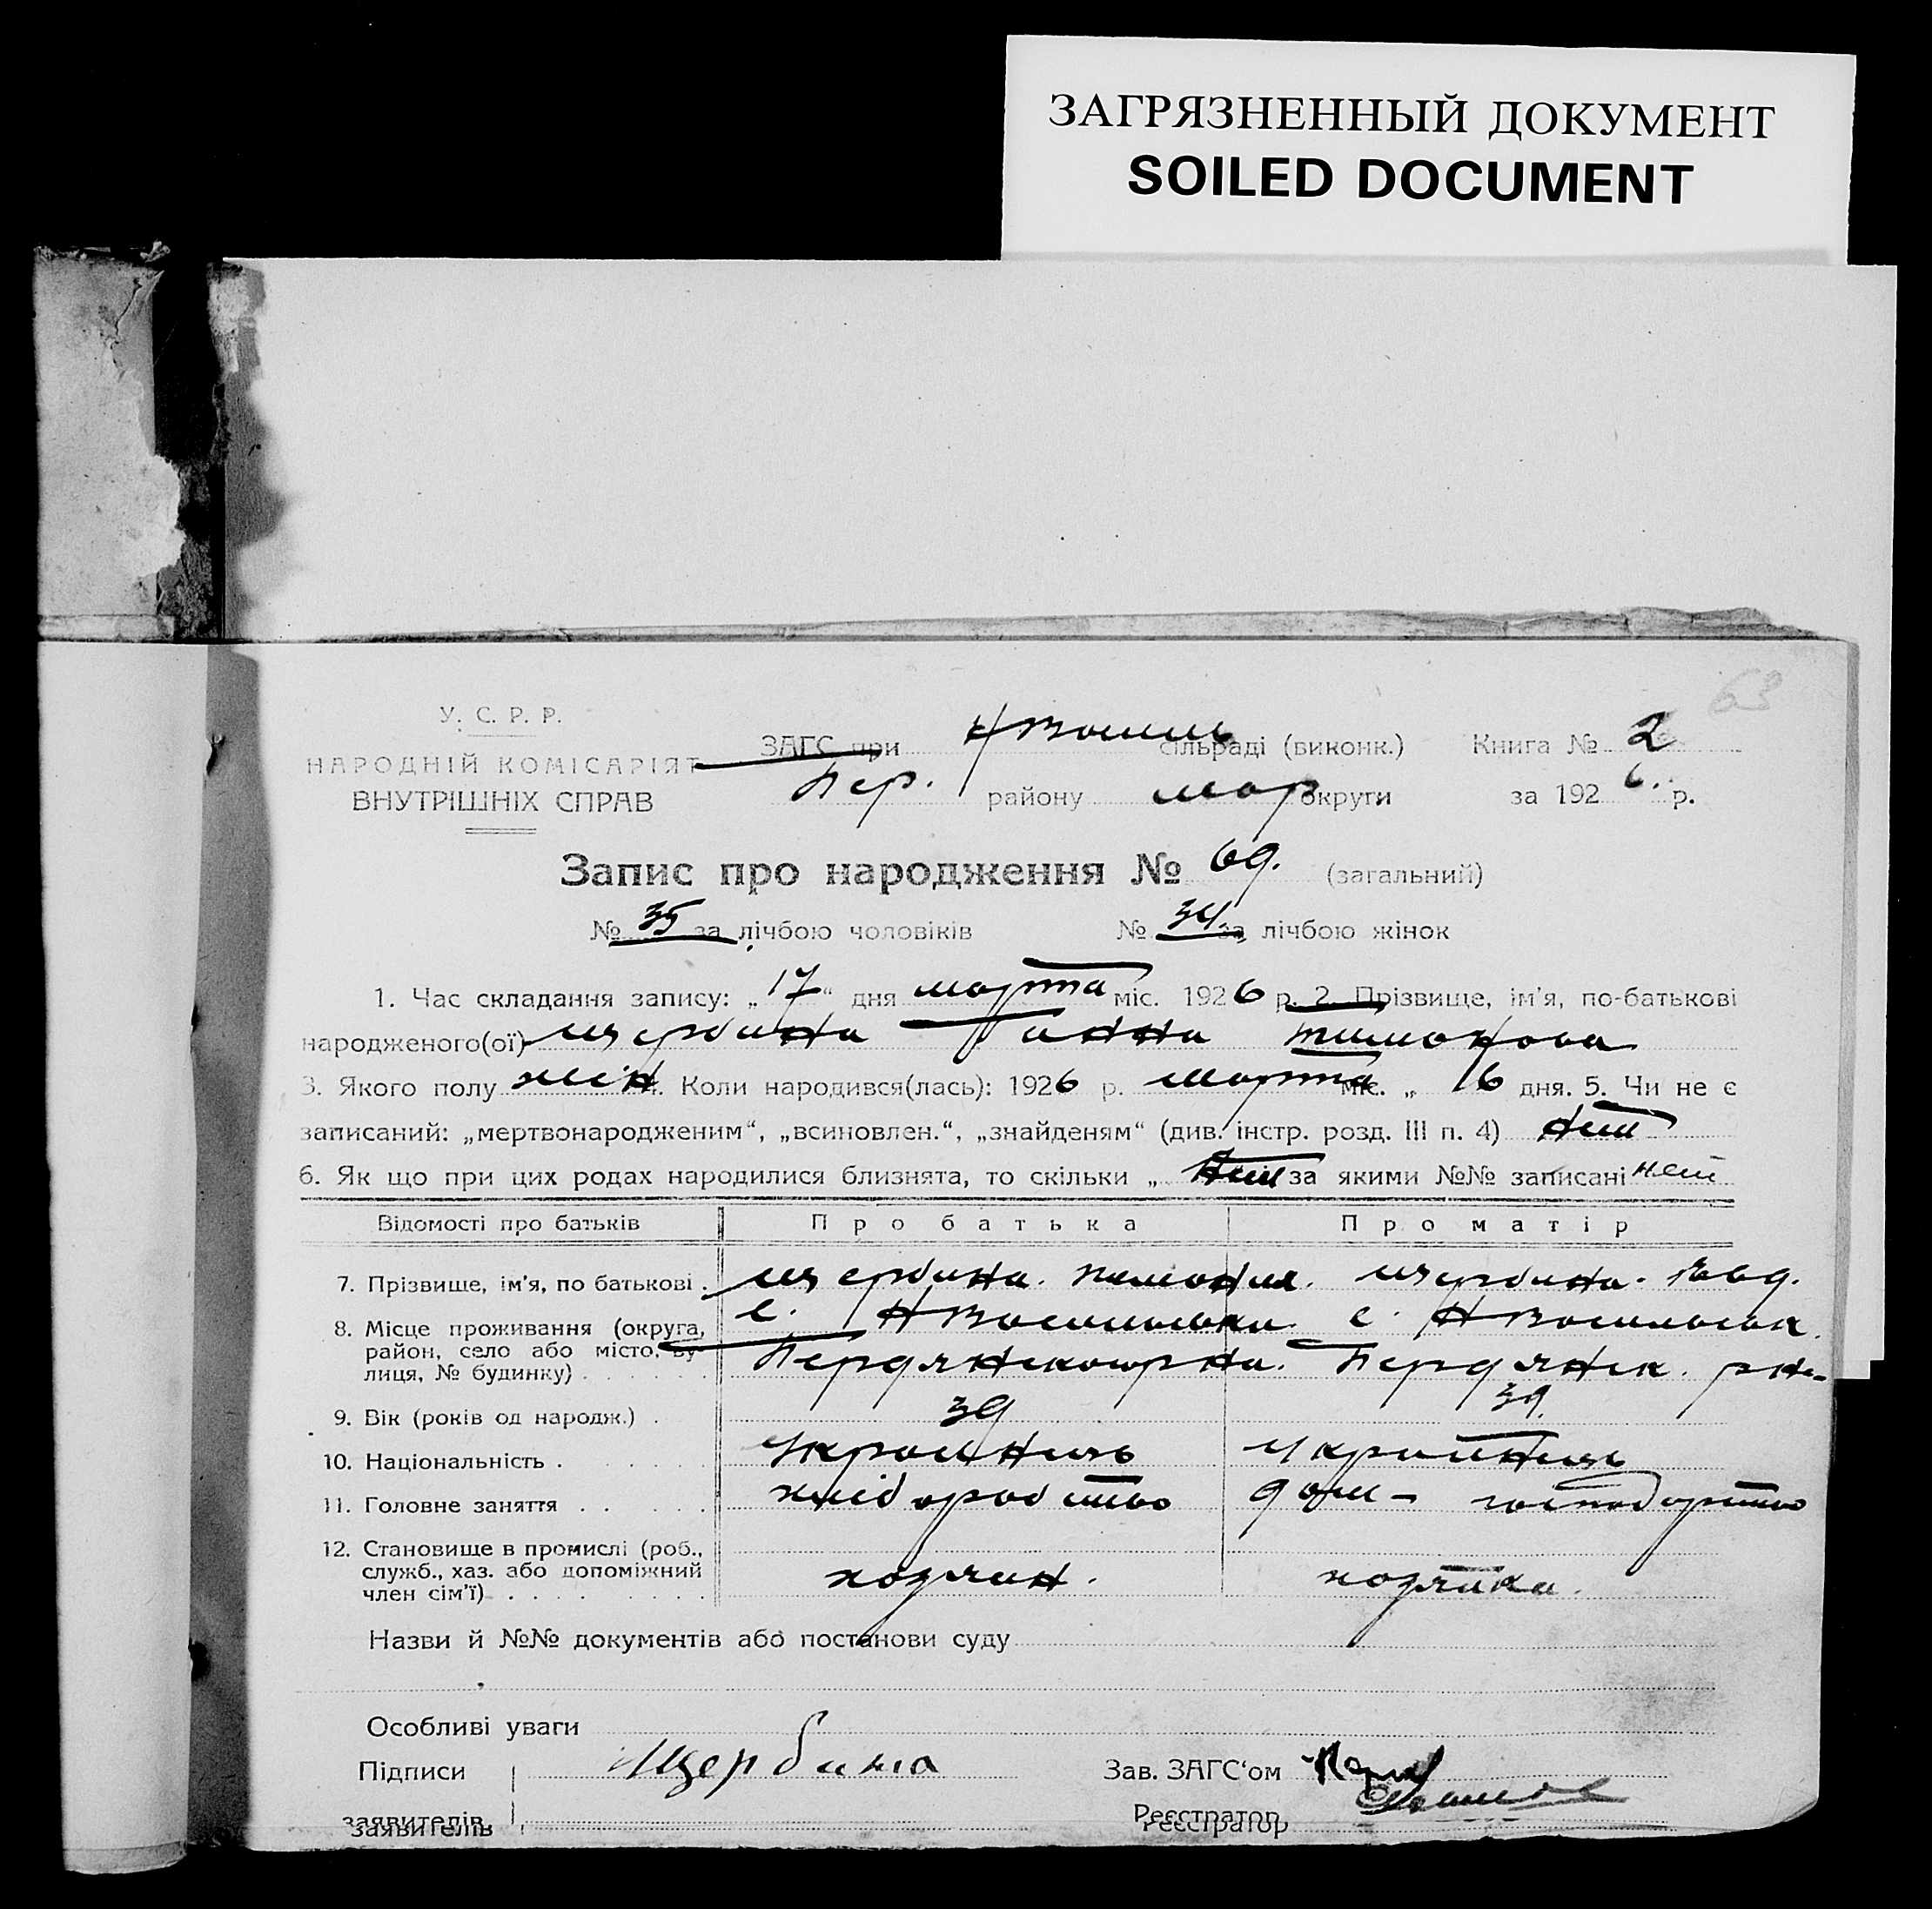 ЗАГРЯЗНЕННЫЙ ДОКУМЕНТ
SOILED DOCUMENT
63
У. С. Р. Р.
НАРОДНІЙ КОМІСАРІЯТ
ВНУТРІШНІХ СПРАВ
ЗАГС при сільраді (виконк.) Книга № 2
Бер. району Мар округи за 1926. р.
Запис про народження № 69. (загальний)
№ 35 за лічбою чоловіків № 34 за лічбою жінок
1. Час складання запису: „17“ дня марта міс. 1926 р. 2. Прізвище, ім'я, по-батькові
народженого(ої) Щербина Ганна
3. Якого полу жін 4. Коли народився(лась): 1926 р. марта міс. „ 16 дня. 5. Чи не є
записаний: „мертвонародженим“, „всиновлен.“, „знайденям“ (див. інстр. розд. III п. 4) нет
6. Як що при цих родах народилися близнята, то скільки „ нет за якими №№ записані нет
Відомості про батьків Про батька Про матір
7. Прізвище, ім'я, по батькові . Щербина. Щербина.
8. Місце проживання (округа, район, село або місто, вулиця, № будинку) с. с.
Бердянск. рна
9. Вік (років од народж.) . 39 39.
10. Національність . Українець Українець
11. Головне заняття . . хліборобство дом- господарство
12. Становище в промислі (роб., служб., хаз. або допоміжний член сім'ї) . хозяин. хозяйка.
Назви й №№ документів або постанови суду
Особливі уваги
Підписи Щербина Зав. ЗАГС'ом
заявителів Реєстратор